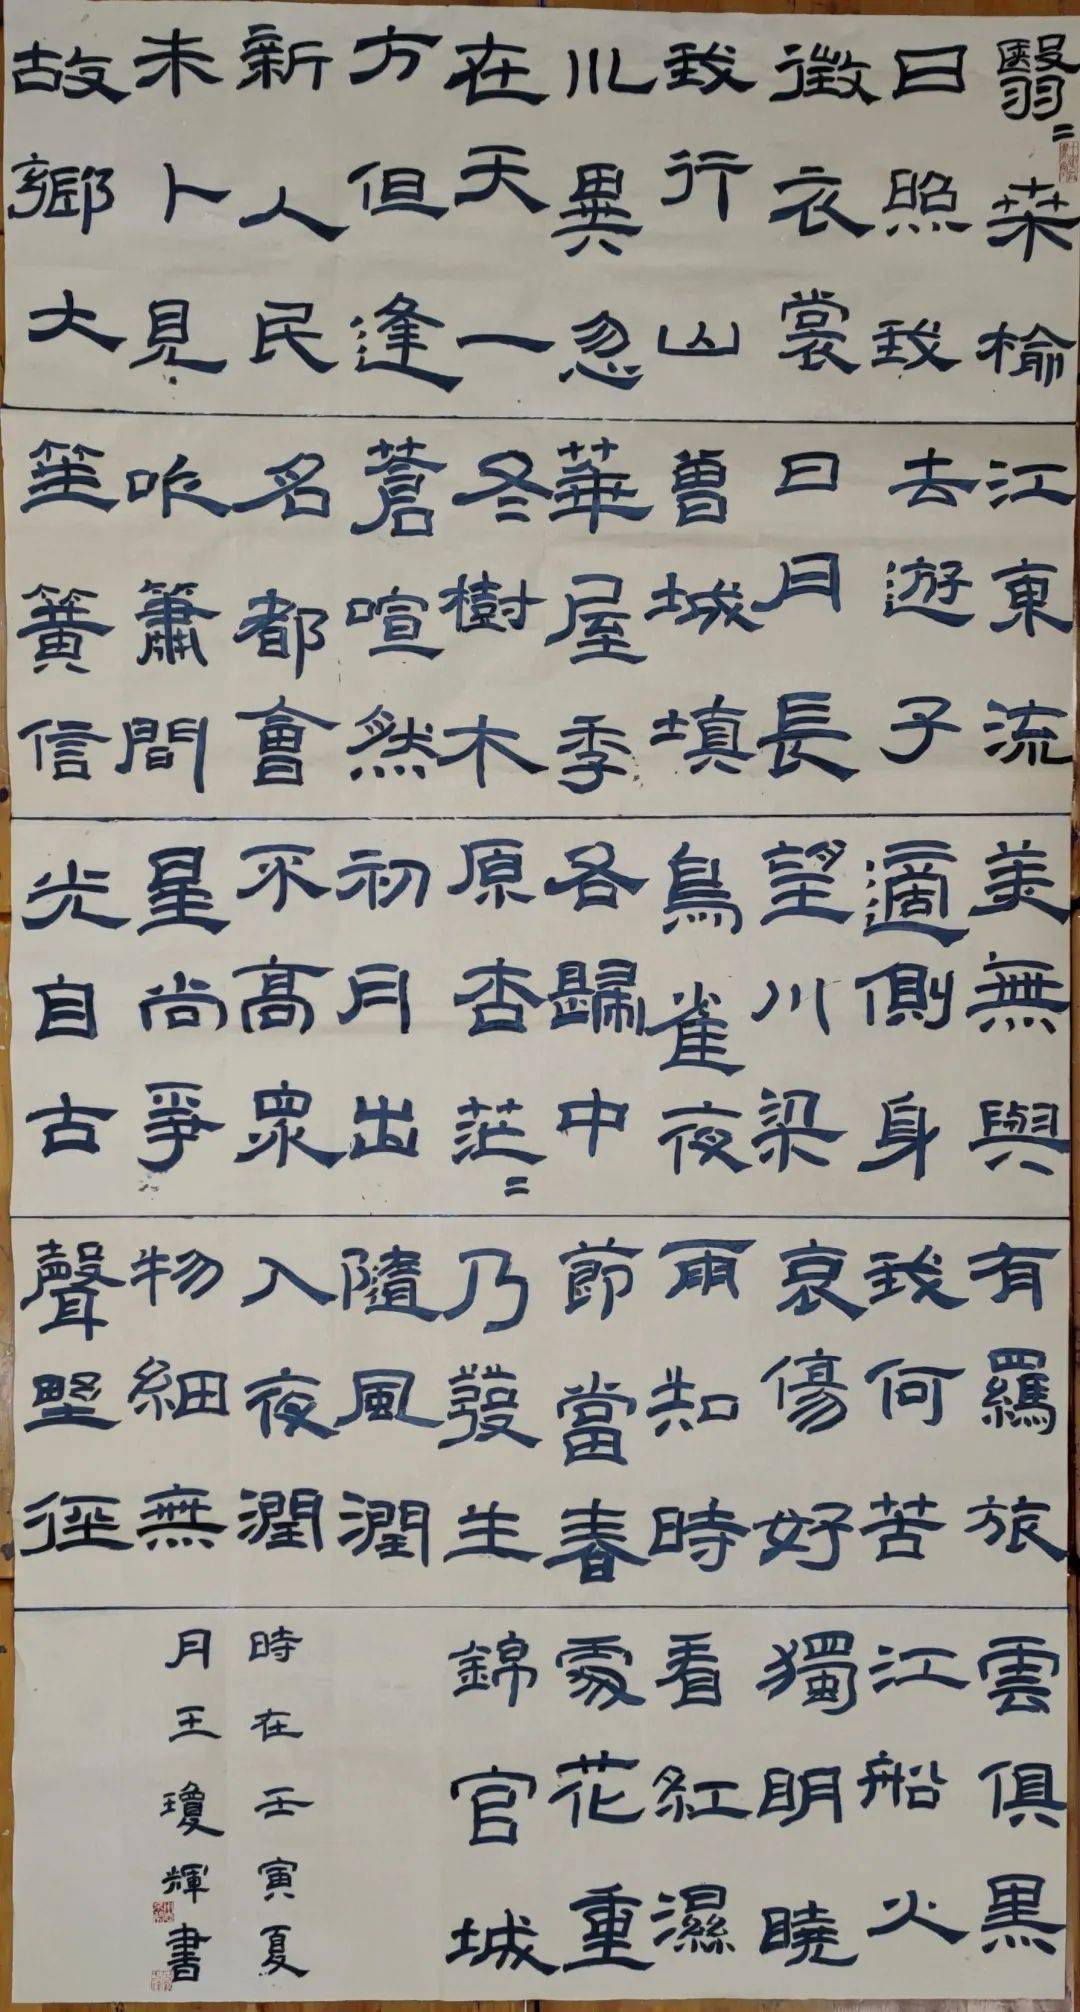 翳〻桑榆
日照我
徵衣裳
我行山
川異忽
在天一
方但逢
新人民
未卜見
故鄉大
江東流
去遊子
日月長
曾城填
華屋季
冬樹木
蒼喧然
名都會
吹簫間
笙簧信
美無與
適側身
望川梁
鳥雀夜
各歸中
原杳茫〻
初月出
不高眾
星尚爭
光自古
有羈旅
我何苦
哀傷好
雨知時
節當春
乃發生
隨風潤
入夜潤
物細無
聲野徑
雲俱黑
江船火
獨明曉
看紅濕
處花重
錦官城
時在壬寅夏
月王瓊輝書